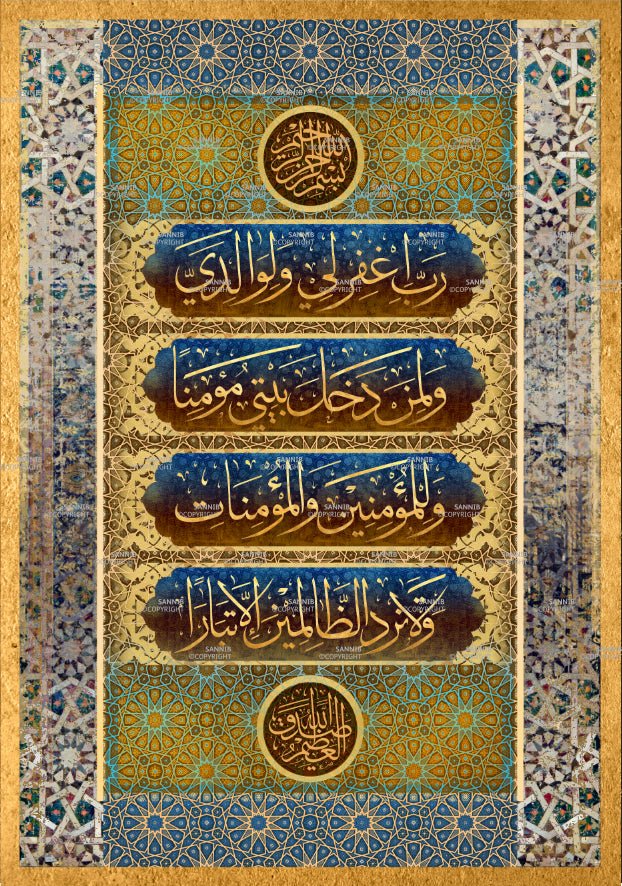 بسم الله الرحمن الرحيم
رَبِّ اغْفِرْ لِي وَلِوَالِدَيَّ
وَلِمَنْ دَخَلَ بَيْتِيَ مُؤْمِنًا
وَلِلْمُؤْمِنِينَ وَالْمُؤْمِنَاتِ
وَلَا تَزِدِ الظَّالِمِينَ إِلَّا تَبَارًا
صدق الله العظيم
SANNIB
©COPYRIGHT